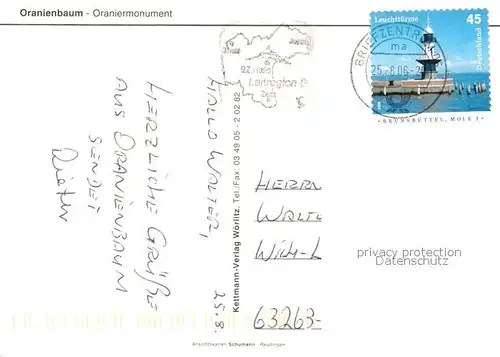 Oranienbaum - Oraniermonument
Leuchttürme 45
Deutschland
BRIEFZENTRUM
ma
BRUNSBÜTTEL, MOLE 1
HALLO WALTER,
25.8.
HERZLICHE GRÜßE
AUS ORANIENBAUM
SENDET
Dieter
Kettmann-Verlag Wörlitz, Tel./Fax: 03 49 05 - 2 02 82
HERRN
63263-
privacy protection
Datenschutz
Ansichtskarten Schumann